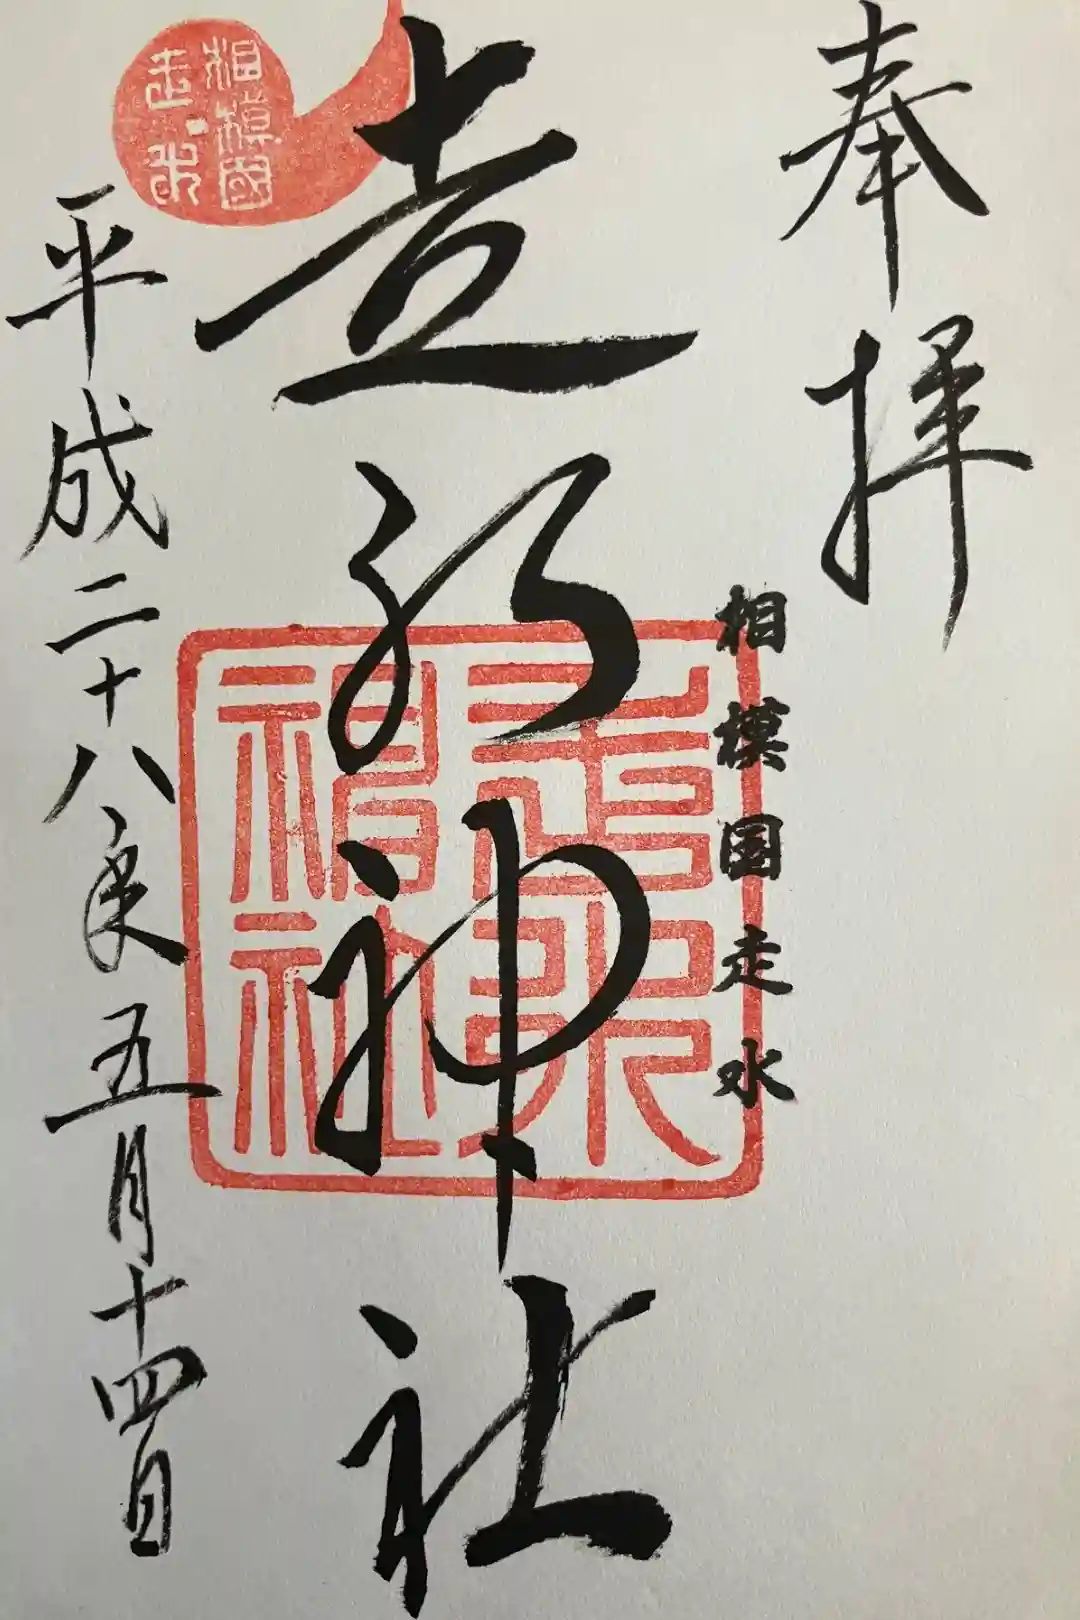 奉拝
相模国走水
走水神社
走水神社
相模國
走水
平成二十八年五月十四日